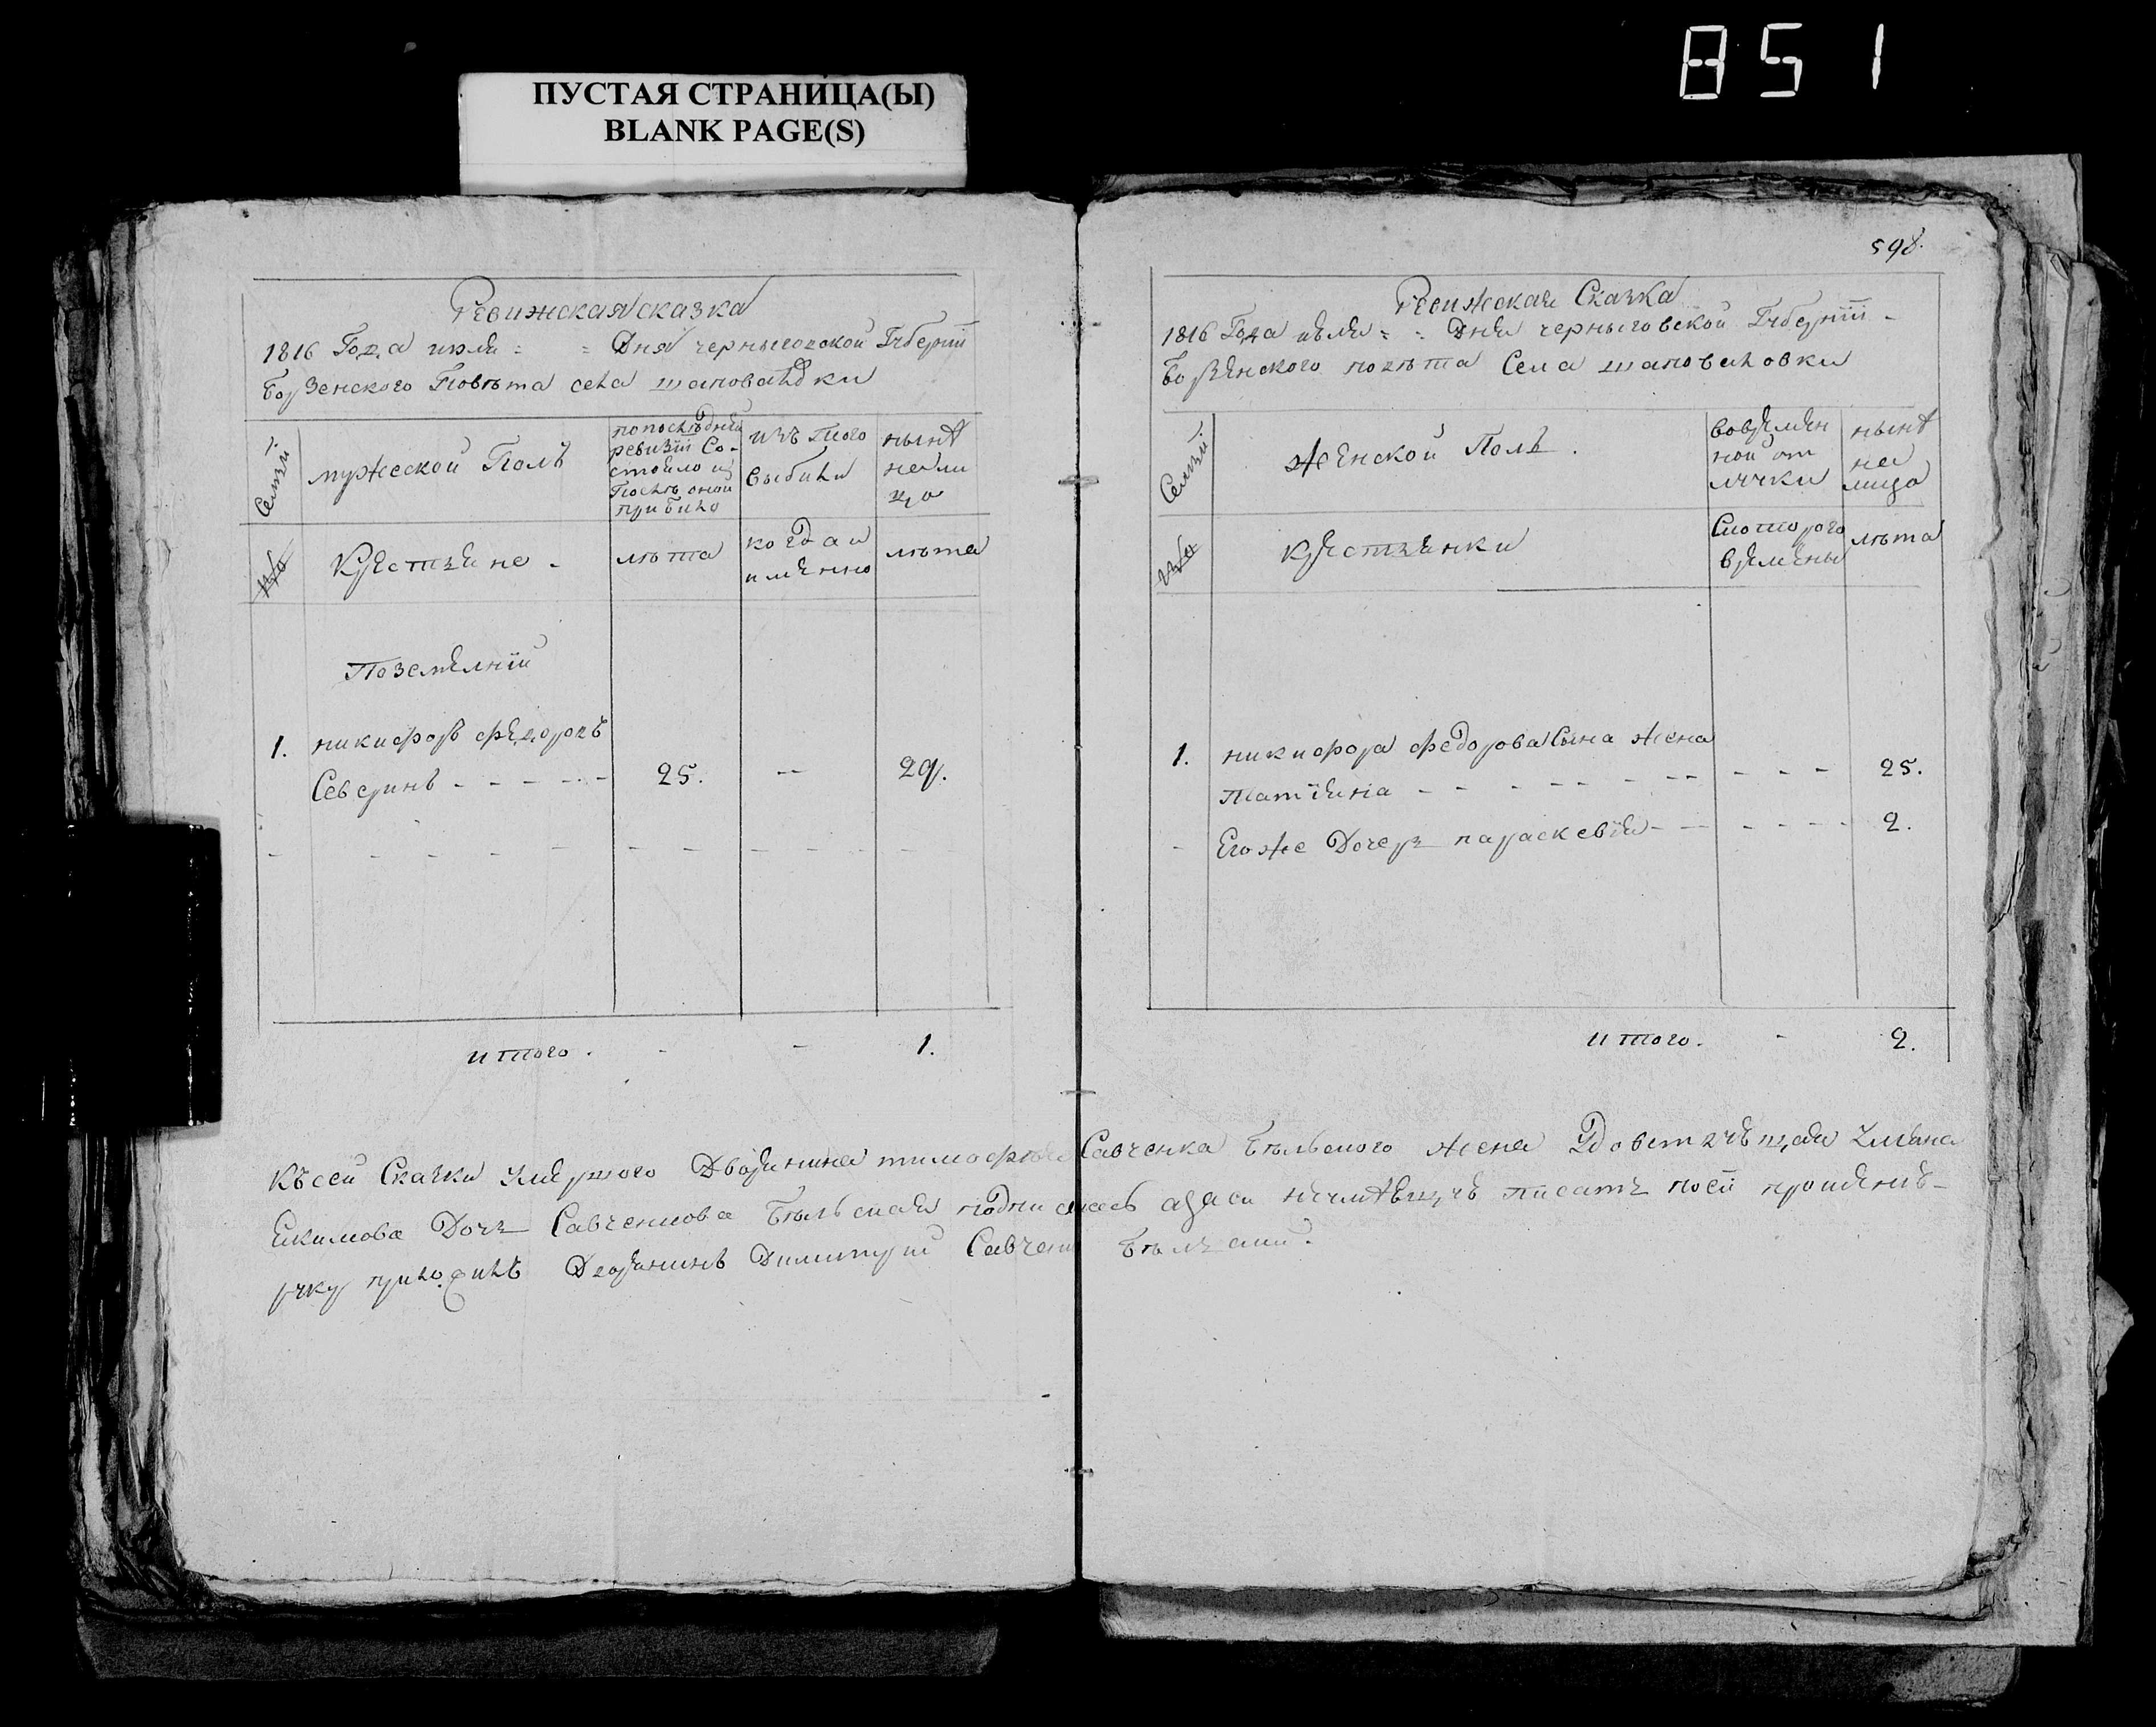 851
ПУСТАЯ СТРАНИЦА(Ы)
BLANK PAGE(S)
Ревижская сказка
1816 Года июля = = Дня черниговской Губернїи
Борзенского Повѣта села шаповаловки
Семьи
мужеской Полъ
попослѣдней ревизїи Состояло и Послѣ оной прибыло
изъ того выбыли
нынѣ налицо
№
Крестьяне -
лѣта
когда и именно
лѣта
Поземелнїи
1. никифоръ федоровъ
Северинъ - - - - - 25. -- 29.
итого. - - 1.
598.
Ревижская Сказка
1816 Года июля = = Дня черниговской Губернїи -
Борзенского повѣта Села шаповаловки
Семьи
Женской Полъ.
вовременной отлучки
нынѣ налицо
№
крестьянки
Скоторого времены
лѣта
1. никифора федорова Сына жена
Татїяна - - - - - - - - - 25.
- Егоже Дочерь параскевїя - - - - - 2.
итого. - 2.
Къ сей Сказки умершого Дворянина тимофея Савченка Бѣльского жена
Екимова Дочь Савченкова Бѣльская писать по ей прошенїю
руку приложилъ Дворянинъ Димитрїй